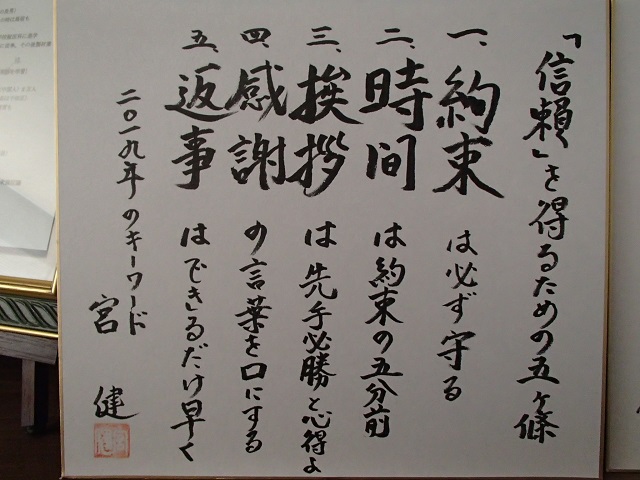 「信頼」を得るための五ヶ條
一、約束は必ず守る
二、時间は約束の五分前
三、挨拶は先手必勝と心得よ
四、感謝の言葉を口にする
五、返事はできるだけ早く
二〇一九年のキーワード
宮 健